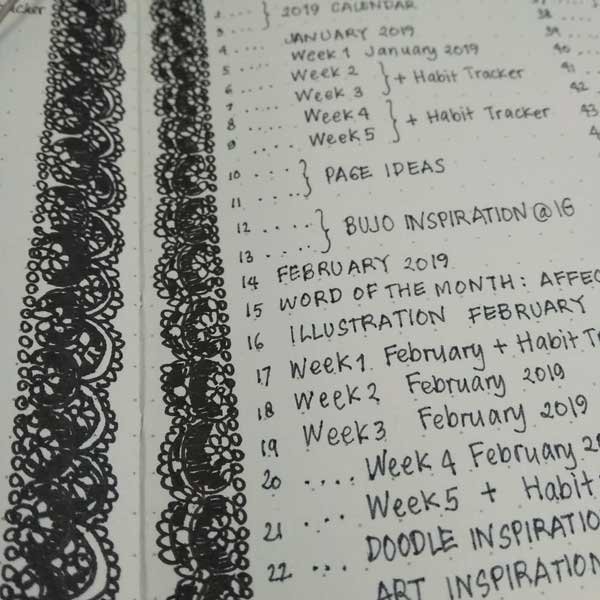 Tracker
2 .... } 2019 CALENDAR
3 ....
4 .... JANUARY 2019
5 .... Week 1 January 2019
6 .... Week 2 } + Habit Tracker
7 .... Week 3
8 .... Week 4 } + Habit Tracker
9 .... Week 5
10 .... } PAGE IDEAS
11 ....
12 .... } BUJO INSPIRATION @ 16
13 ....
14 FEBRUARY 2019
15 WORD OF THE MONTH: AFFEC
16 ILLUSTRATION FEBRUARY
17 Week 1 February + Habit Tr
18 Week 2 February 2019
19 Week 3 February 2019
20 .... Week 4 February 20
21 .... Week 5 + Habit
22 ... DOODLE INSPIRATIO
ART INSPIRATION
38
39
40
41
42
43